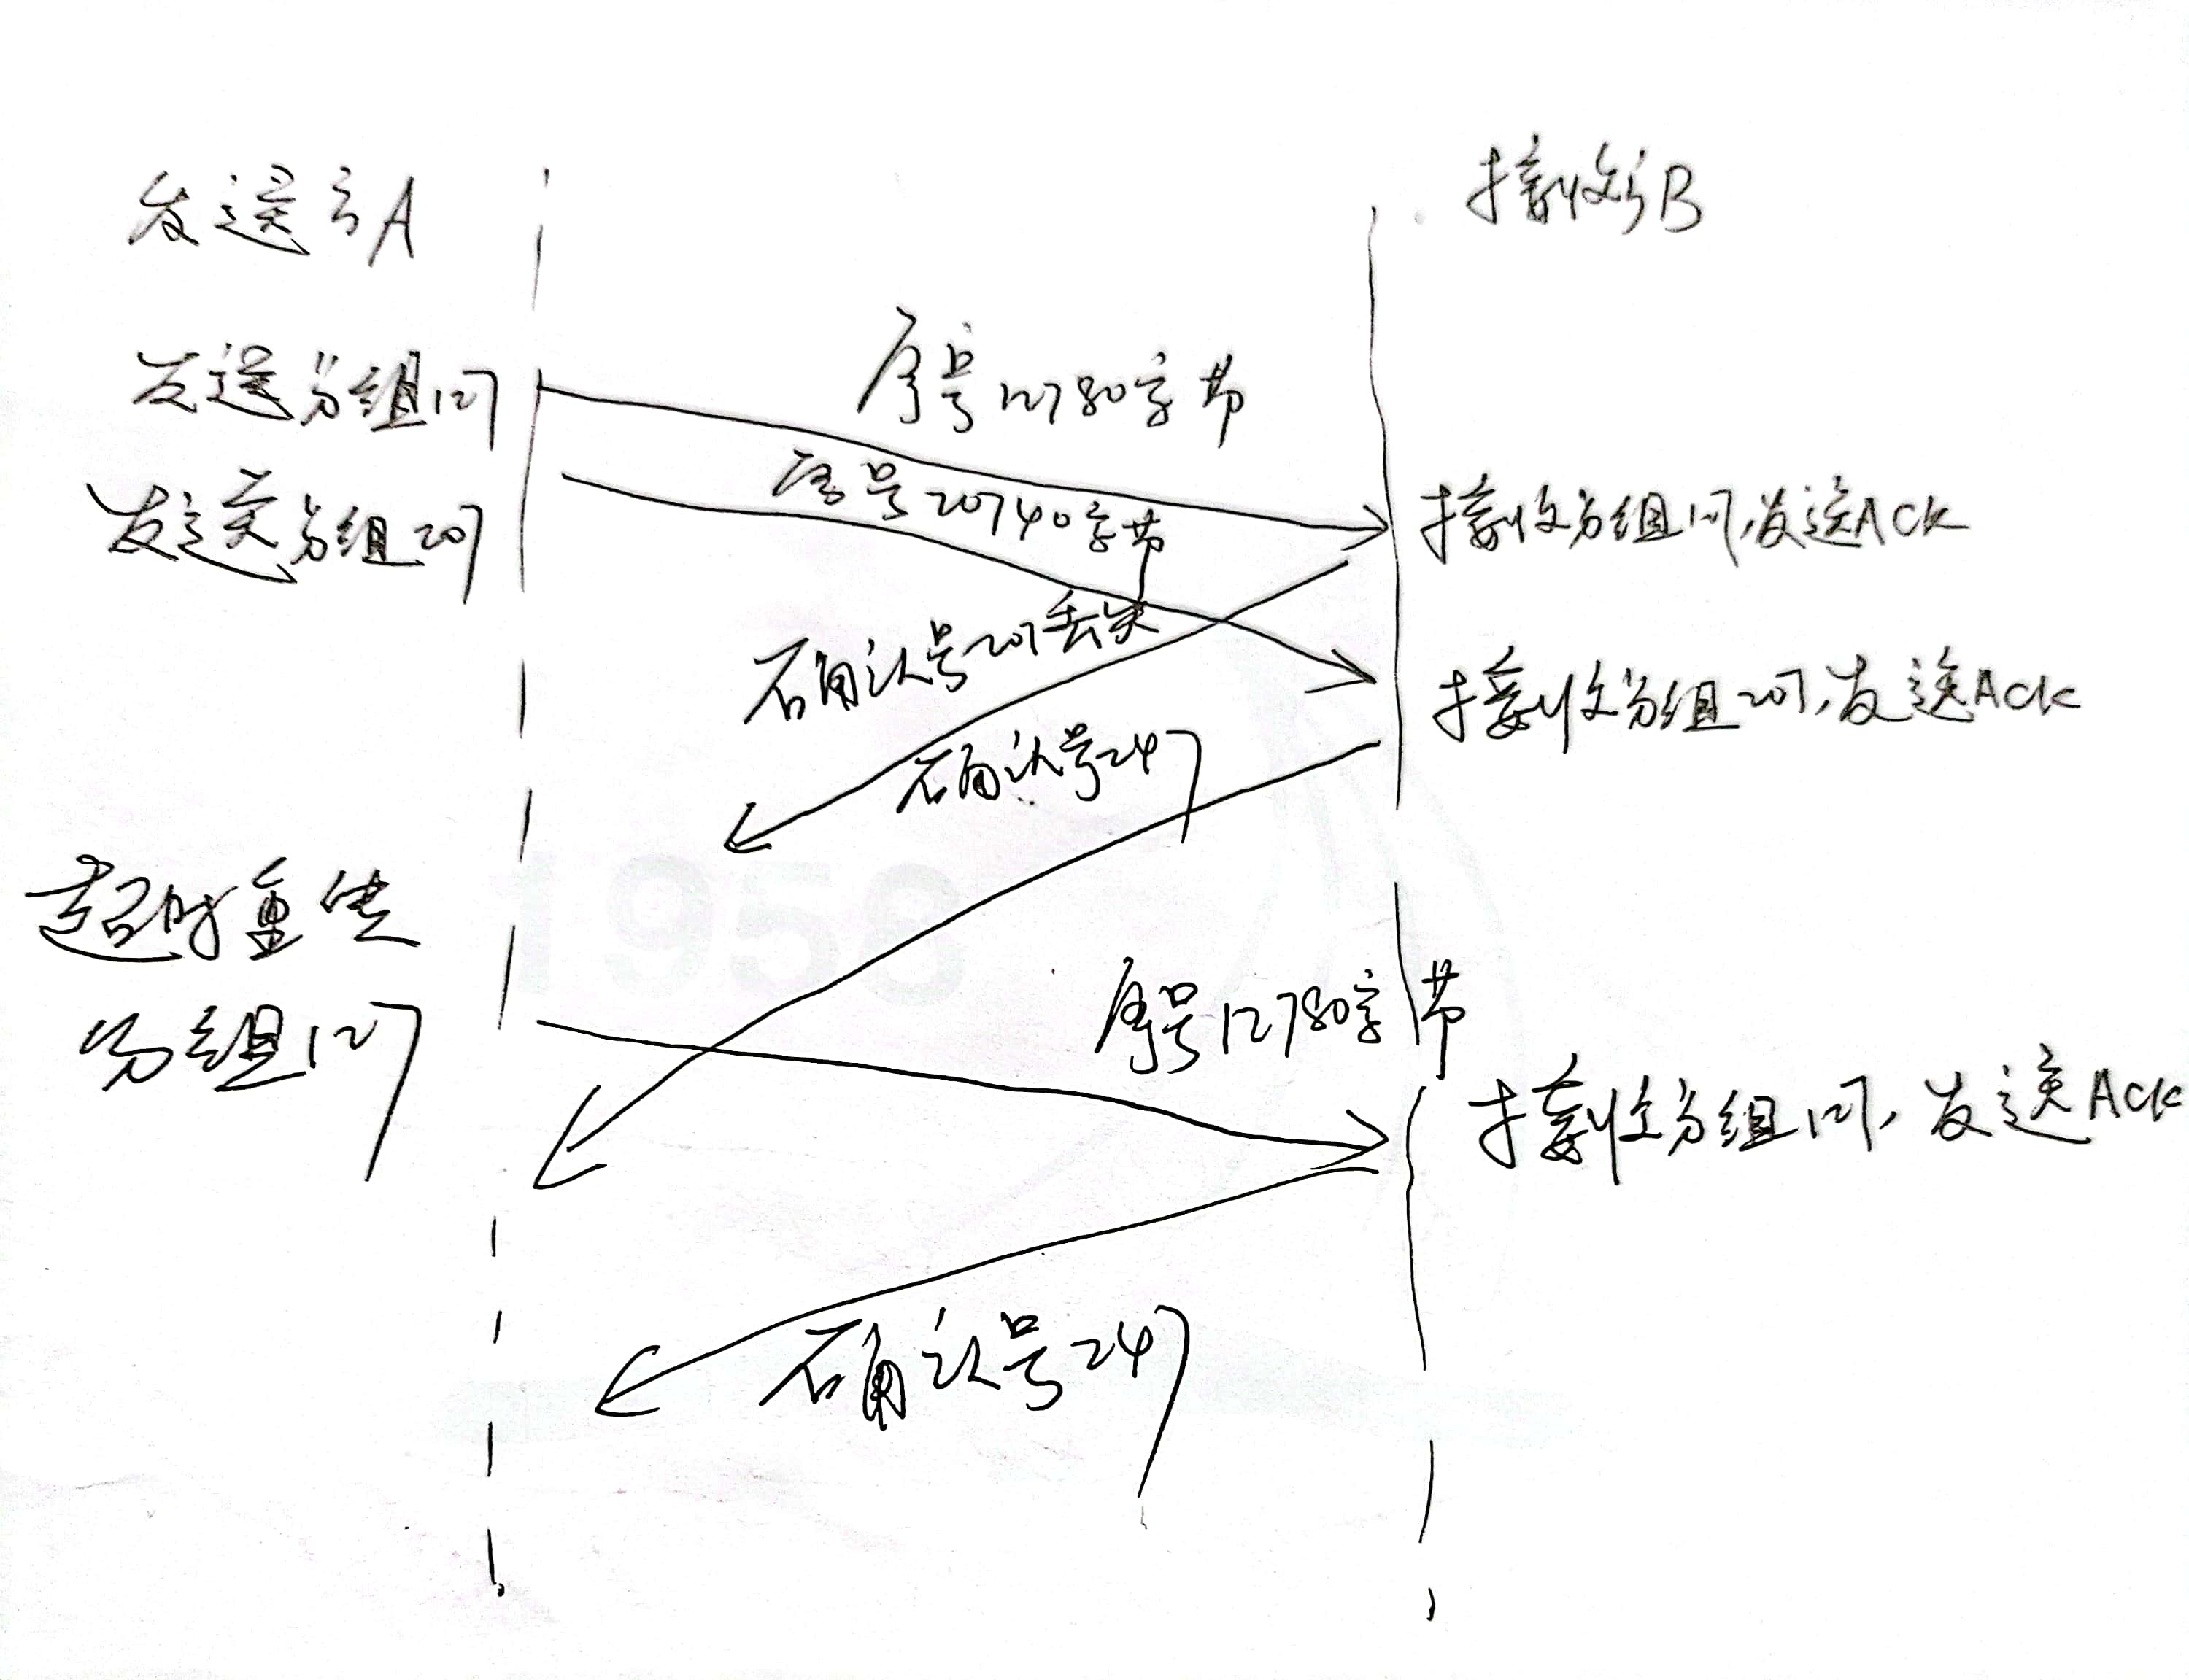 发送方A
接收方B
发送分组127
序号127 80字节
发送分组207
序号207 40字节
接收分组127,发送ACK
确认号207丢失
接收分组207,发送ACK
确认号247
超时重传
分组127
序号127 80字节
接收分组127,发送ACK
确认号247
1958